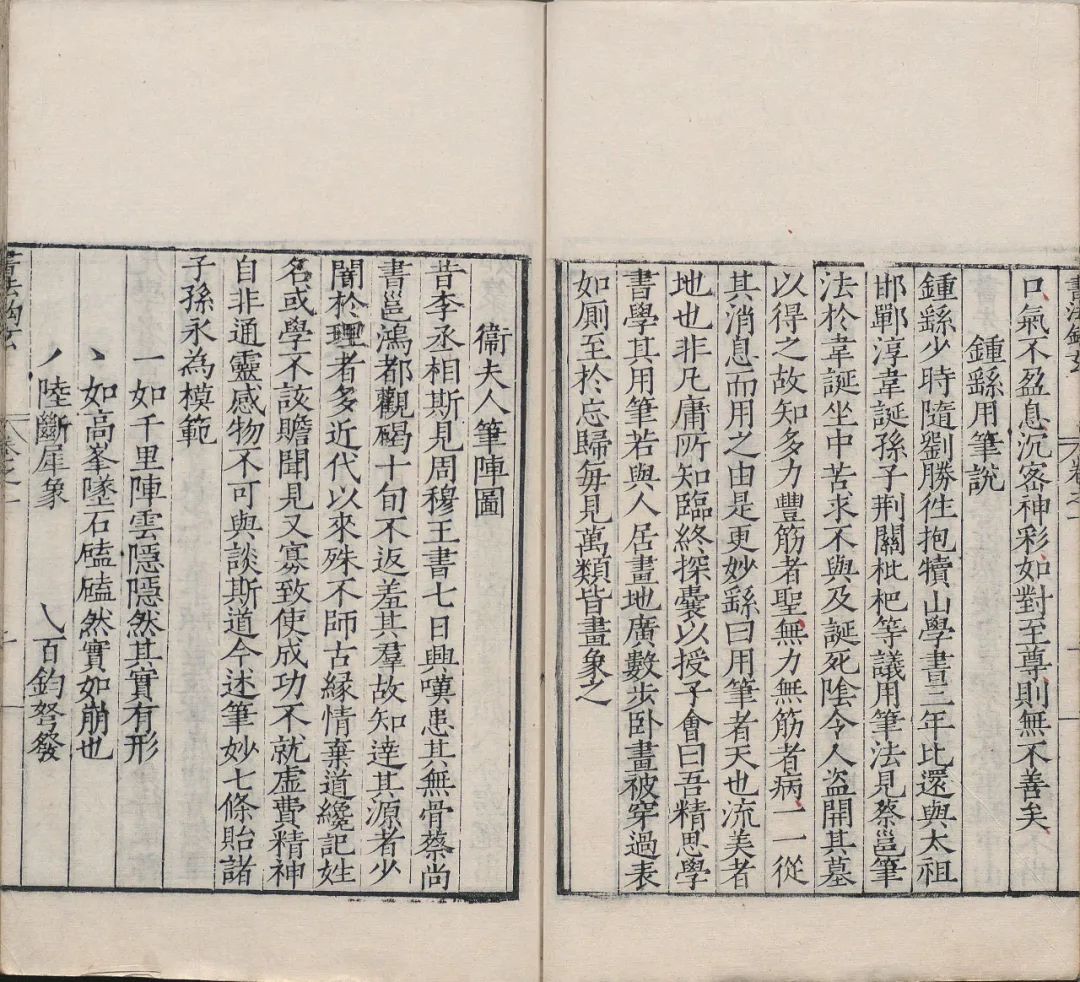 口氣不盈息沉密神彩如對至尊則無不善矣
鍾繇用筆說
鍾繇少時隨劉勝徃抱犢山學書三年比還與太祖
邯鄲淳韋誕孫子荆關枇杷等議用筆法見蔡邕筆
法於韋誕坐中苦求不與及誕死陰令人盜開其墓
以得之故知多力豐筋者聖無力無筋者病一一從
其消息而用之由是更妙繇曰用筆者天也流美者
地也非凡庸所知臨終探囊以授子會曰吾精思學
書學其用筆若與人居畫地廣數步卧畫被穿過表
如厠至於忘歸毎見萬類皆畫象之
衞夫人筆陣圖
昔李丞相斯見周穆王書七日興嘆患其無骨蔡尚
書邕鴻都觀碣十旬不返羞其羣故知達其源者少
闇於理者多近代以來殊不師古縁情棄道纔記姓
名或學不該贍聞見又寡致使成功不就虛費精神
自非通靈感物不可與談斯道今述筆妙七條貽諸
子孫永為模範
一如千里陣雲隱隱然其實有形
丶如高峯墜石磕磕然實如崩也
丿陸斷犀象 ㇏百鈞弩發